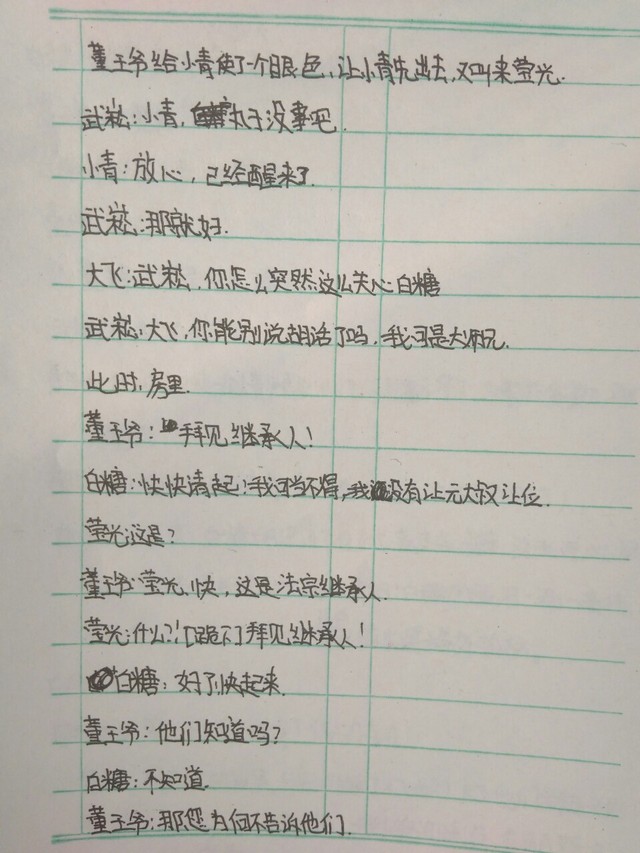 董王爷给小青使了个眼色,让小青先出去,又叫来莹光.
武崧:小青,丸子没事吧.
小青:放心,已经醒来了.
武崧:那就好.
大飞:武崧,你怎么突然这么关心白糖
武崧:大飞,你能别说胡话了吗,我可是大师兄.
此时,房里.
董王爷:拜见继承人!
白糖:快快请起!我可当不得,我没有让元大叔让位.
莹光:这是?
董王爷:莹光,快,这是法宗继承人.
莹光:什么?![跪下]拜见继承人!
白糖:好了快起来.
董王爷:他们知道吗?
白糖:不知道.
董王爷:那您为何不告诉他们.